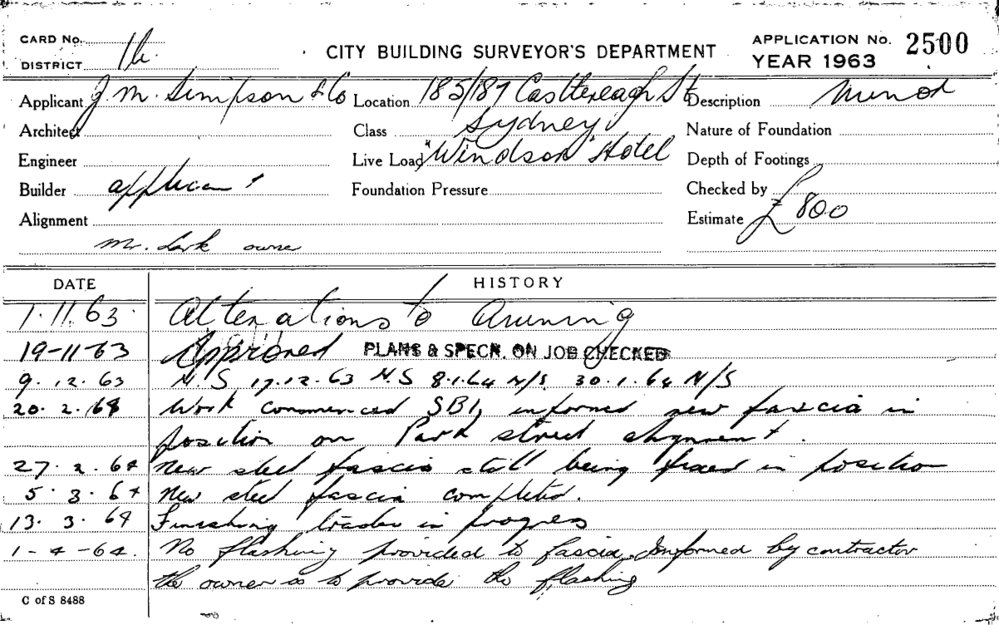 CARD No.
CITY BUILDING SURVEYOR'S DEPARTMENT
APPLICATION No. 2500
DISTRICT
YEAR 1963
Applicant J. M. Simpson & Co Location 185/187 Castlereagh St Description Minor
Architect Class Sydney Nature of Foundation
Engineer Live Load "Windsor" Hotel Depth of Footings
Builder applicant Foundation Pressure Checked by
Alignment Estimate £800
Mr. owner
DATE HISTORY
1.11.63. Alterations to Awning
19-11-63 Approved PLANS & SPECN. ON JOB CHECKED
9.12.63 N.S 17.12.63 N.S 8.1.64 N/S 30.1.64 N/S
20.2.64 Work commenced SBI, informed new fascia in
position on Park street alignment.
27.2.64 New steel fascia still being fixed in position
5.3.64 New steel fascia completed.
13.3.64 Finishing trades in progress
1-4-64. No flashing provided to fascia. Informed by contractor
the owner is to provide the flashing
C of S 8488